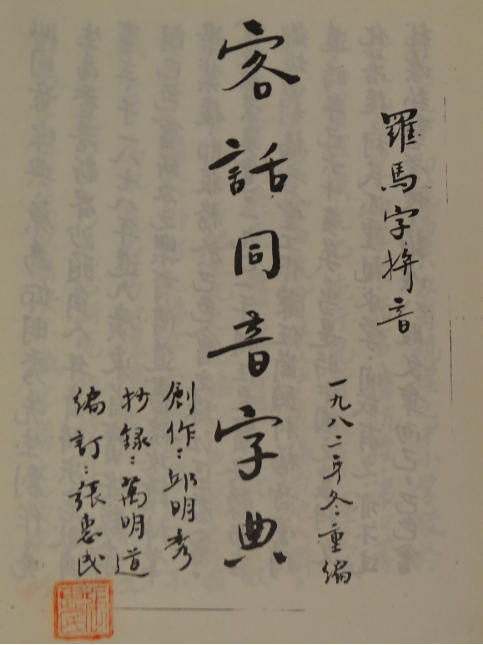 羅馬字拚音
客話同音字典
一九八二年冬重編
創作：邱明秀
抄錄：萬明道
編訂：張惠民